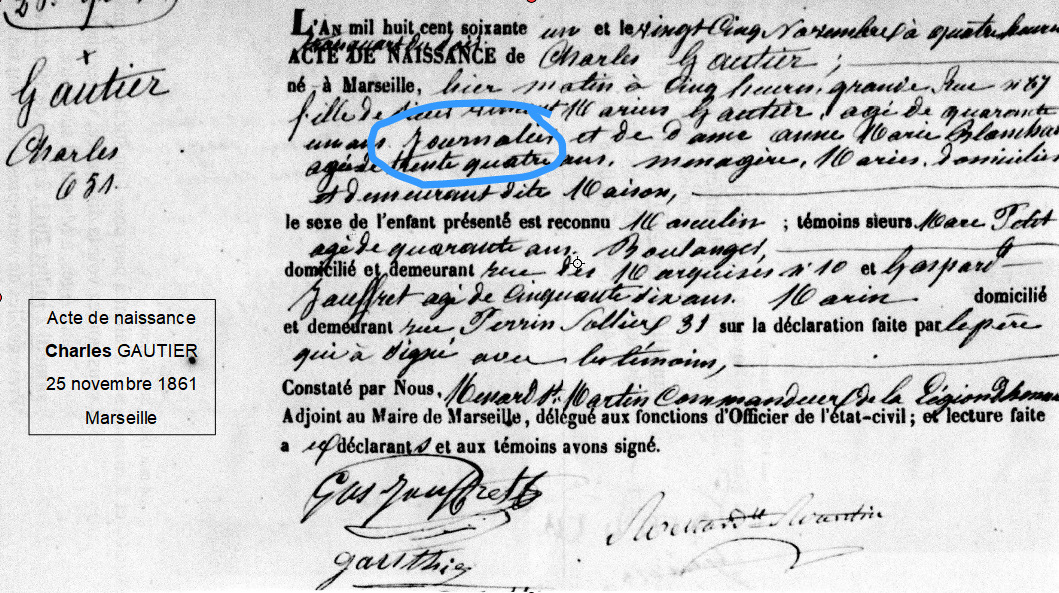 Gautier
Charles
651.
L'AN mil huit cent soixante un et le vingt cinq Novembre à quatre heures
trois quart du soir.
ACTE DE NAISSANCE de Charles Gautier ;
né à Marseille, hier matin à Cinq heures, grande Rue n° 67
fille de Marius Gautier, agé de quarante
un ans, Journalier et de Dame anne Marie
agée de trente quatre ans, menagère, Mariés, domiciliés
et demeurant dite Maison,
le sexe de l'enfant présenté est reconnu Masculin ; témoins sieurs Marc Petit
agé de quarante ans, Boulanger,
domicilié et demeurant rue des Marquises n° 10 et Gaspard
Jauffret agé de Cinquante dix ans. Marin domicilié
et demeurant rue Perrin Sollier 31 sur la déclaration faite par le père
qui à signé avec les témoins,
Constaté par Nous, Menard St Martin Commandeur de la Légion D'honneur
Adjoint au Maire de Marseille, délégué aux fonctions d'Officier de l'état-civil ; et lecture faite
a déclarants et aux témoins avons signé.
Gas Jauffret
gautthier
Menard St Martin
Acte de naissance
Charles GAUTIER
25 novembre 1861
Marseille